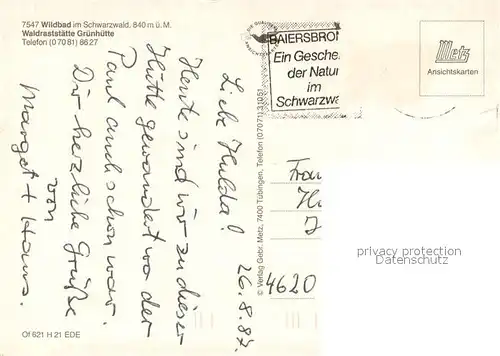 7547 Wildbad im Schwarzwald, 840 m ü. M.
Waldraststätte Grünhütte
Telefon (0 70 81) 86 27
26.8.87.
Liebe Hulda!
Heute sind wir zu dieser
Hütte gewandert wo der
Paul auch schon war.
Dir herzliche Grüße
von
Margot + Hans.
Of 621 H 21 EDE
© Verlag Gebr. Metz, 7400 Tübingen, Telefon (07071) 31051
BAIERSBRO
Ein Gesche
der Natur
im
Schwarzwa
Metz
Ansichtskarten
Frau
4620
privacy protection
Datenschutz